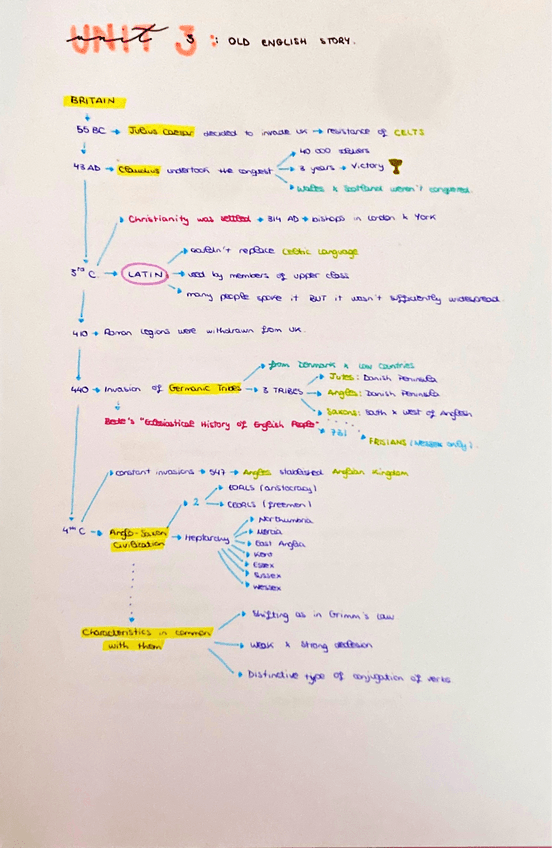 UNIT 3
unit 3: OLD ENGLISH STORY.
BRITAIN
55 BC → Julius Caesar decided to invade UK → resistance of CELTS
40 000 soldiers
43 AD → Claudius undertook the conquest → 3 years → Victory
Wales & Scotland weren't conquered.
Christianity was settled → 314 AD → bishops in London & York
couldn't replace Celtic Language
3rd C. → LATIN → used by members of upper class
many people spoke it BUT it wasn't sufficiently widespread.
410 → Roman legions were withdrawn from UK.
from Denmark & Low Countries
440 → Invasion of Germanic Tribes → 3 TRIBES → Jutes: Danish Peninsula
Angles: Danish Peninsula
Saxons: South & west of
Bede's "Ecclesiastical History of English People" 731
FRISIANS (Wessex only).
constant invasions → 547 → Angles stablished Anglian Kingdom
2 → EORLS (aristocracy)
CEORLS (freemen)
4th C → Anglo-Saxon Civilization → Heptarchy → Northumbria
Mercia
East Anglia
Kent
Essex
Sussex
Wessex
Characteristics in common
with them
Shifting as in Grimm's Law
Weak & Strong declesion
Distinctive type of conjugation of verbs